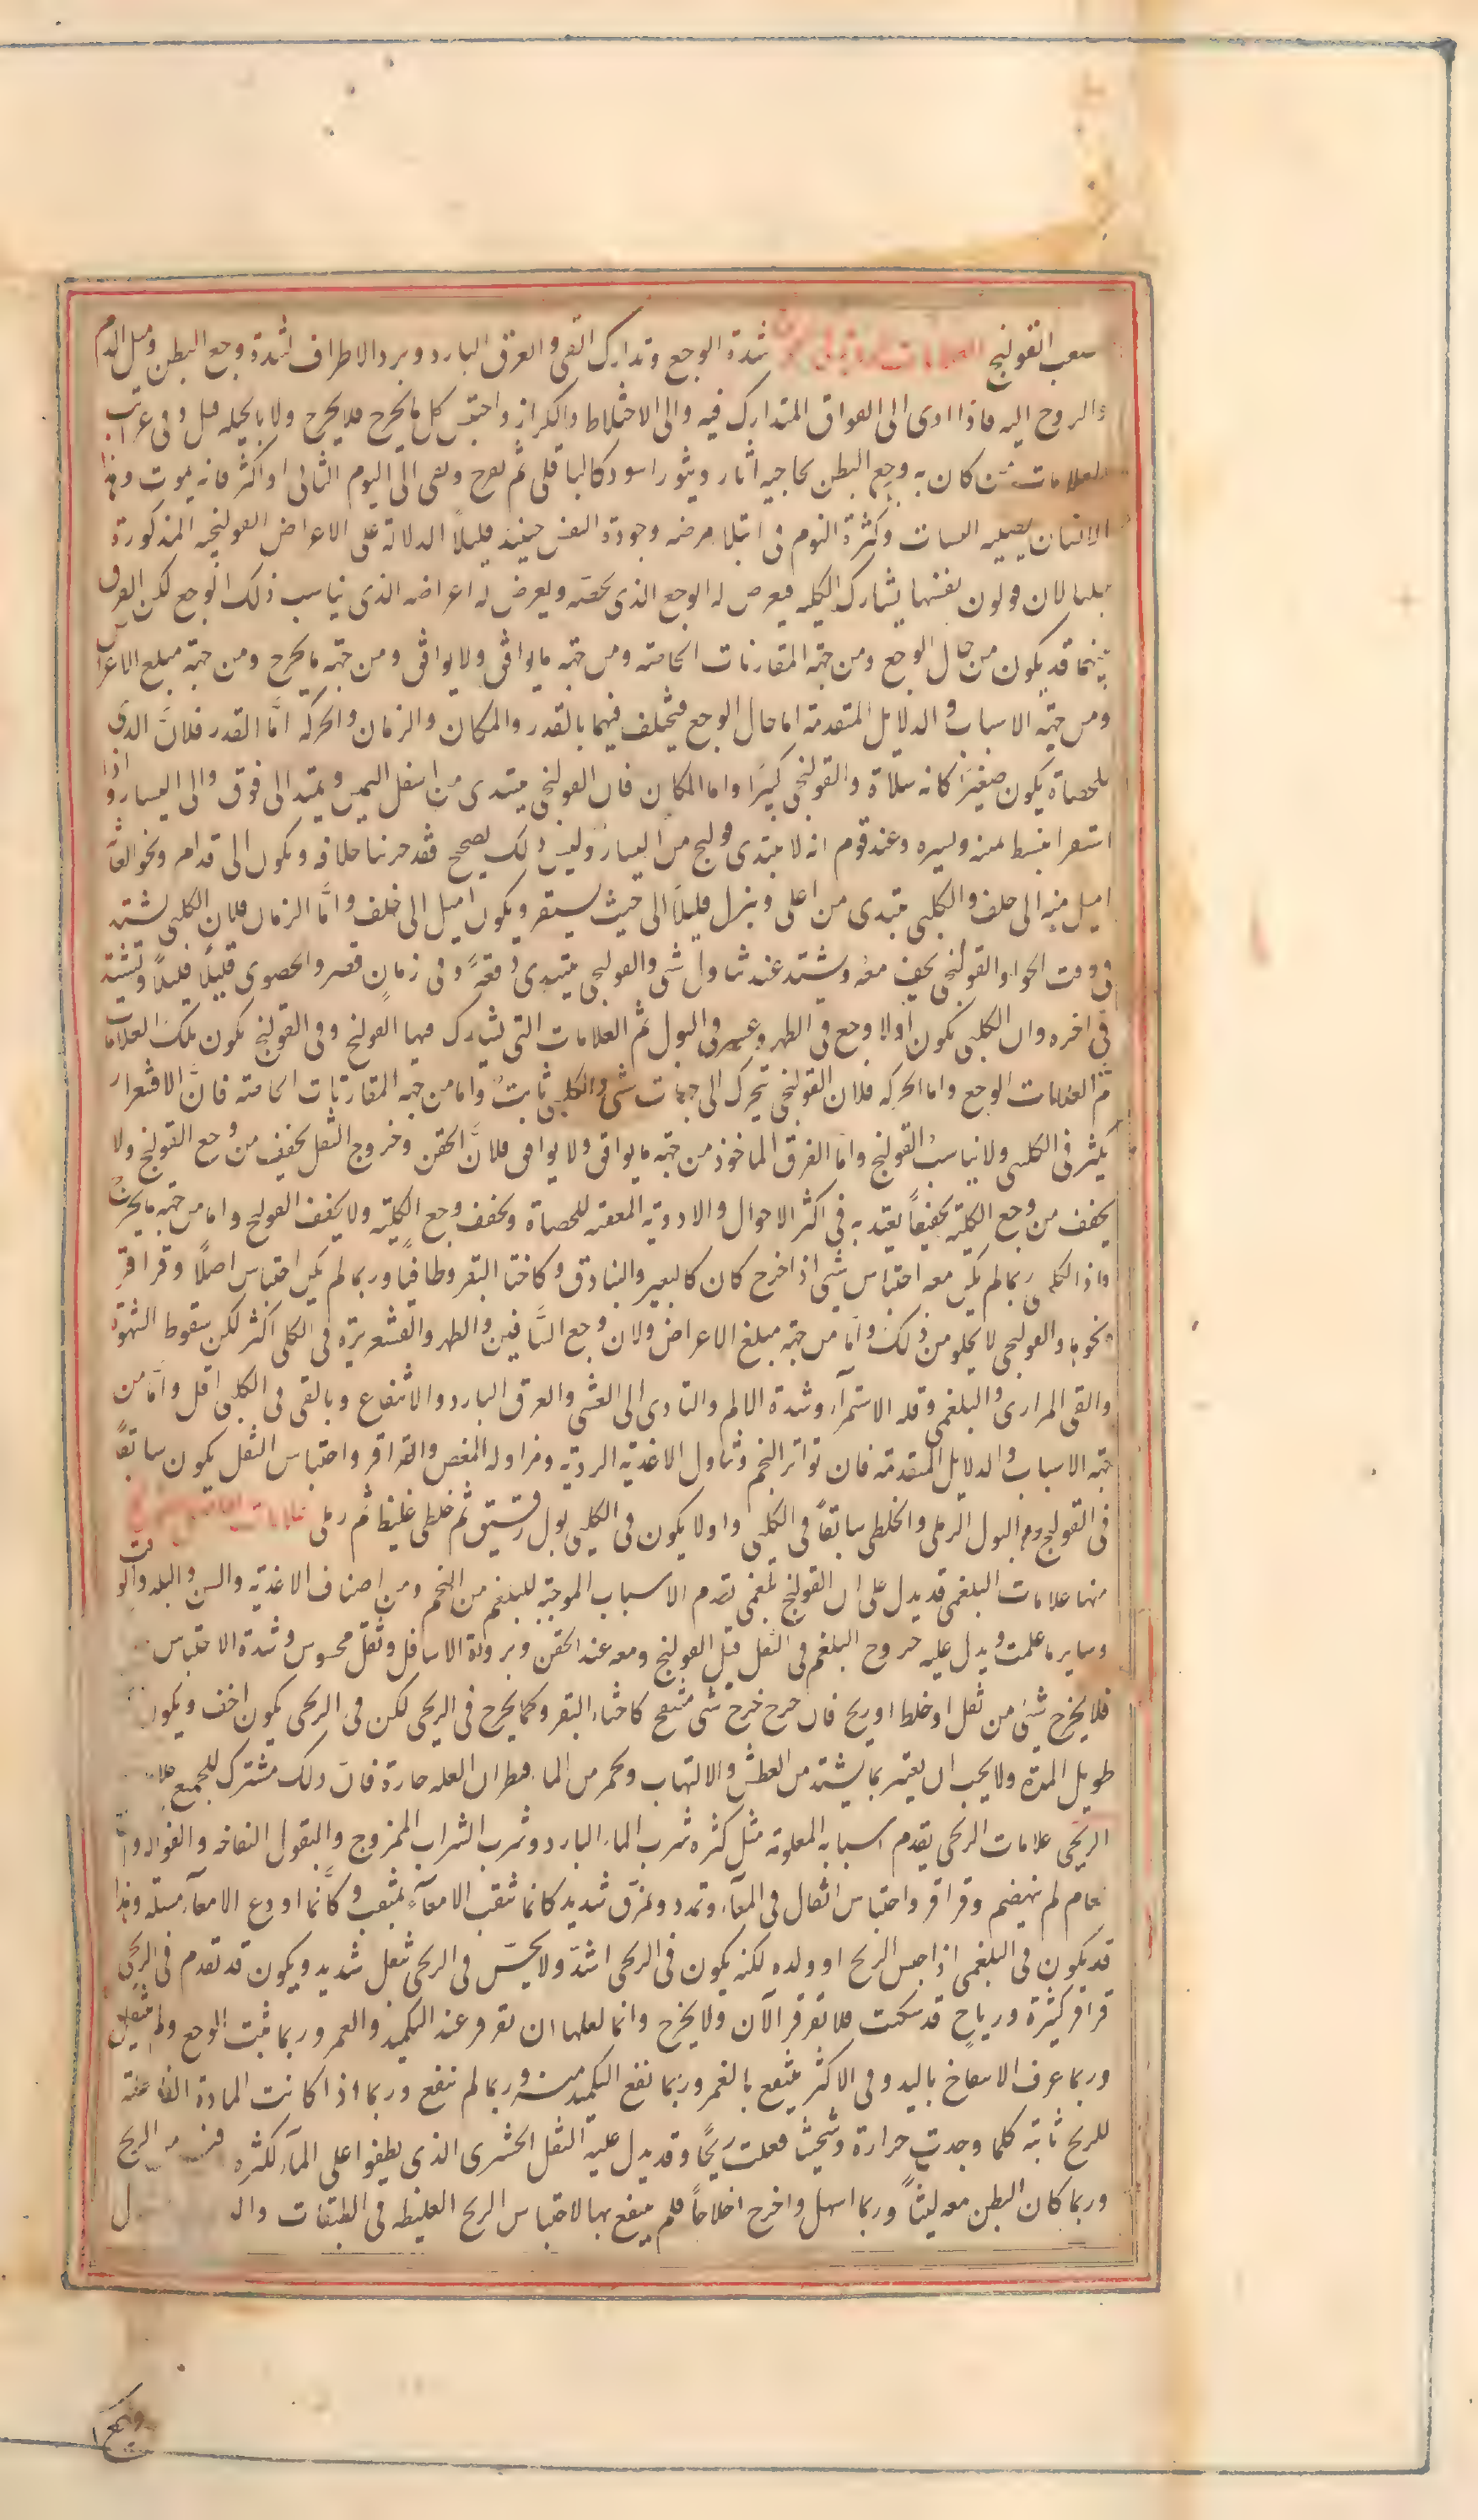 القولنج العلامات شدة الوجع وتدارك القي والعرق البارد وبرد الاطراف لشدة وجع البطن وميل الدم
والروح اليه فاذا ادى الى الفواق المتدارك فيه والى الاختلاط والكزاز واحتبس كل ما يخرج فلا يخرج ولا بالحيله قتل وفى غرائب
العلامات من كان به وجع البطن بحاجبه اثار وبثور اسود كالباقلى ثم تقرح وبقى الى اليوم الثانى او اكثر فانه يموت وهذا
الانسان يصيبه السبات وكثرة النوم فى ابتداء مرضه وجودة النفس حينئذ قليلاً الدلالة على الاعراض القولنجيه المذكورة
لان قولون نفسها يشارك الكليه فيعرض له الوجع الذى يخصه ويعرض له اعراضه الذى يناسب ذلك الوجع لكن الفرق
بينهما قد يكون من حال الوجع ومن جهة المقارنات الخاصه ومن جهه ما يوافق ولا يوافق ومن جهه ما يخرج ومن جهة مبلغ الاعراض
ومن جهه الاسباب و الدلايل المتقدمة اما حال الوجع فيختلف فيهما بالقدر والمكان والزمان والحركه امَّا القدر فلانَّ الذى
للحصاة يكون صغيرَا كانه سلاة والقولنجى كبيرَا واما المكان فان القولنجى يبتدى من اسفل اليمين ويمتد الى فوق والى اليسار واذا
استقر انبسط يمنه ويسره وعند قوم انه لا يبتدى قولنج من اليسار وليس ذلك بصحيح فقد جربنا خلافه ويكون الى قدام ونحو العانة
اميل منه الى خلف والكلى يبتدى من اعلى وينزل قليلاً الى حيث يستقر ويكون اميل الى خلف وامَّا الزمان فلان الكلى يشتد
فى وقت الخوا والقولنجى يخف معه ويشتد عند تناول شى والقولنجى يبتدى دفعةً وفى زمان قصير والحصوى قليلًا قليلاً ويشتد
فى اخره وان الكلى يكون اولا وجع فى الظهر وعسر فى البول ثم العلامات التى يشارك فيها القولنج وفى القولنج يكون تلك العلامات
ثم العلامات الوجع واما الحركه فلان القولنجى يتحرك الى جهات شتى والكلى ثابت واما من جهه المقارنات الخاصه فانَّ الاقشعرار
يكثر فى الكلى ولا يناسب القولنج وامَّا الفرق الماخوذ من جهه ما يوافق ولا يوافق فلانَّ الحقن وخروج الثفل يخفف من وجع القولنج ولا
يخفف من وجع الكلية تخفيفاً يعتد به فى اكثر الاحوال والادوية المفتته للحصاة ويخفف وجع الكليَّه ولا يخفف القولنج واما من جهه ما يخرج
واذ الكلى ربما لم يكن معه احتباس شى اذ اخرج كان كالبعير والبنادق وكاخثا البقر وطافيا وربما لم يكن احتباس اصلًا وقراقر
ونحوها والقولنجى لا يخلو من ذلك وامَّا من جهه مبلغ الاعراض ولان وجع السَّاقين والظهر والقشعريرة فى الكلى اكثر لكن سقوط الشهوة
والقى المرارى والبلغمى وقله الاستمرآء وشدة الالم والتادى الى الغشى والعرق البارد والانتفاع وبالقى فى الكلى اقل وامَّا من
جهه الاسباب والدلايل المتقدمه فان تواتر التخم وتناول الاغذية الرديّه ومزاوله المغص والقراقر واحتباس الثفل يكون سابقاً
فى القولنج و البول الرملى والخلطى سابقاً فى الكلى واولا يكون فى الكلى بول رقيق ثم خلطى غليظ ثم رملى علامات
منها علامات البلغمى قد يدل على ان القولنج بلغمى تقدم الاسباب الموجبَّة للبلغم من التخم ومن اصناف الاغذية والسن والبلد والوقت
وساير ما علمت ويدل عليه خروج البلغم فى الثفل قبل القولنج ومعه عند الحقن وبرودة الاسافل وثقل محسوس وشدة الاحتباس
فلا يخرج شىَ من ثفل او خلط اوريح فان خرج خرج شى منتفخ كاخثاء البقر وكما يخرج فى الريحى لكن فى الريحى يكون اخف ويكون
طويل المدة ولا يجب ان يعتبر بما يشتد من العطش والالتهاب ويحمر من الماء فيظن ان العله حارة فانَ ذلك مشترك للجميع
الريحى علامات الريحى تقدم اسبابه المعلومه مثل كثره شرب الماء البارد وشرب الشراب الممزوج والبقول النفاخه والفواكه
طعام لم ينهضم وقراقر واحتباس اثفال فى المعآء وتمدد وتمزق شديد كانما تثقب الامعآء بمثقب وكانَّما اودع الامعآء مسله وهذا
قد يكون فى البلغمى اذا حبس الريح او ولده لكنه يكون فى الريحى اشدّ ولا يحسّ فى الريحى ثقل شديد ويكون قد تقدم فى الريحى
قراقر كثيرة ورياح قد سكنت فلا تقرقر الآن ولا يخرج وانما لعلها ان تقرقر عند التكميد والغمز وربما ثبت الوجع ولم ينتقل
وربما عرف الانتفاخ باليد وفى الاكثر ينتفع بالغمز وربما نفع التكميد منه وربما لم ينفع وربما اذا كانت المادة الفاعلة
للريح ثابته كلما وجدت حرارة وتسخينا فعلت ريحًا وقد يدل عليه الثفل الحشرى الذى يطفوا على المآء لكثره الريح
وربما كان البطن معه لينًا وربما اسهل واخرج اخلاطاً فلم ينتفع بها لاحتباس الريح الغليظه فى الطبقات